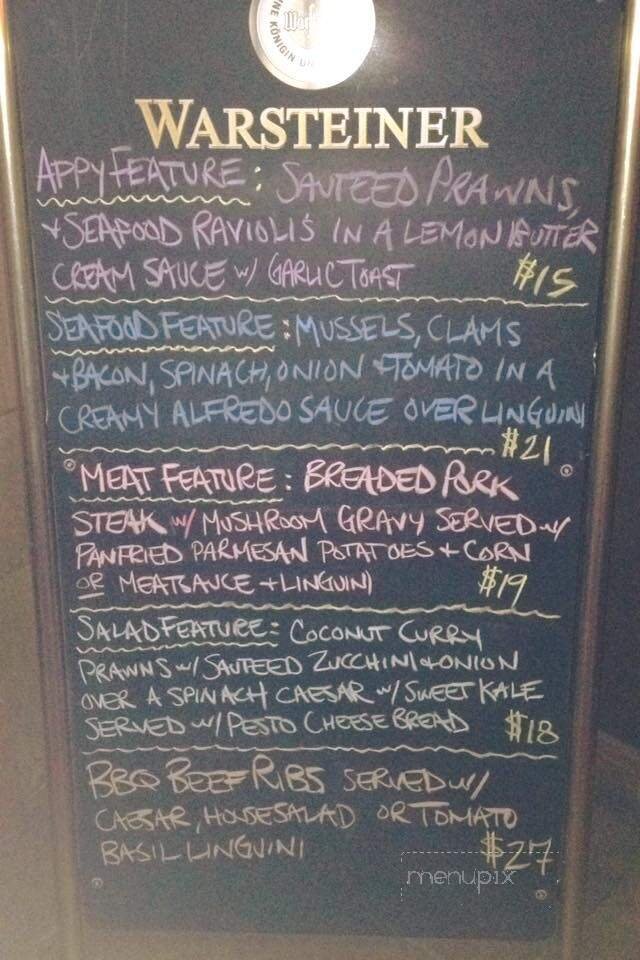 NE KÖNIGIN UN
WARSTEINER
APPY FEATURE: SAUTEED PRAWNS,
+ SEAFOOD RAVIOLIS IN A LEMON BUTTER
CREAM SAUCE W/ GARLIC TOAST $15
SEAFOOD FEATURE: MUSSELS, CLAMS
+ BACON, SPINACH, ONION + TOMATO IN A
CREAMY ALFREDO SAUCE OVER LINGUINI
$21
MEAT FEATURE: BREADED PORK
STEAK W/ MUSHROOM GRAVY SERVED W/
PANFRIED PARMESAN POTATOES + CORN
OR MEATSAUCE + LINGUINI $19
SALAD FEATURE: COCONUT CURRY
PRAWNS W/ SAUTEED ZUCCHINI + ONION
OVER A SPINACH CAESAR W/ SWEET KALE
SERVED W/ PESTO CHEESE BREAD $18
BBQ BEEF RIBS SERVED W/
CAESAR, HOUSESALAD OR TOMATO
BASIL LINGUINI $27
menupix